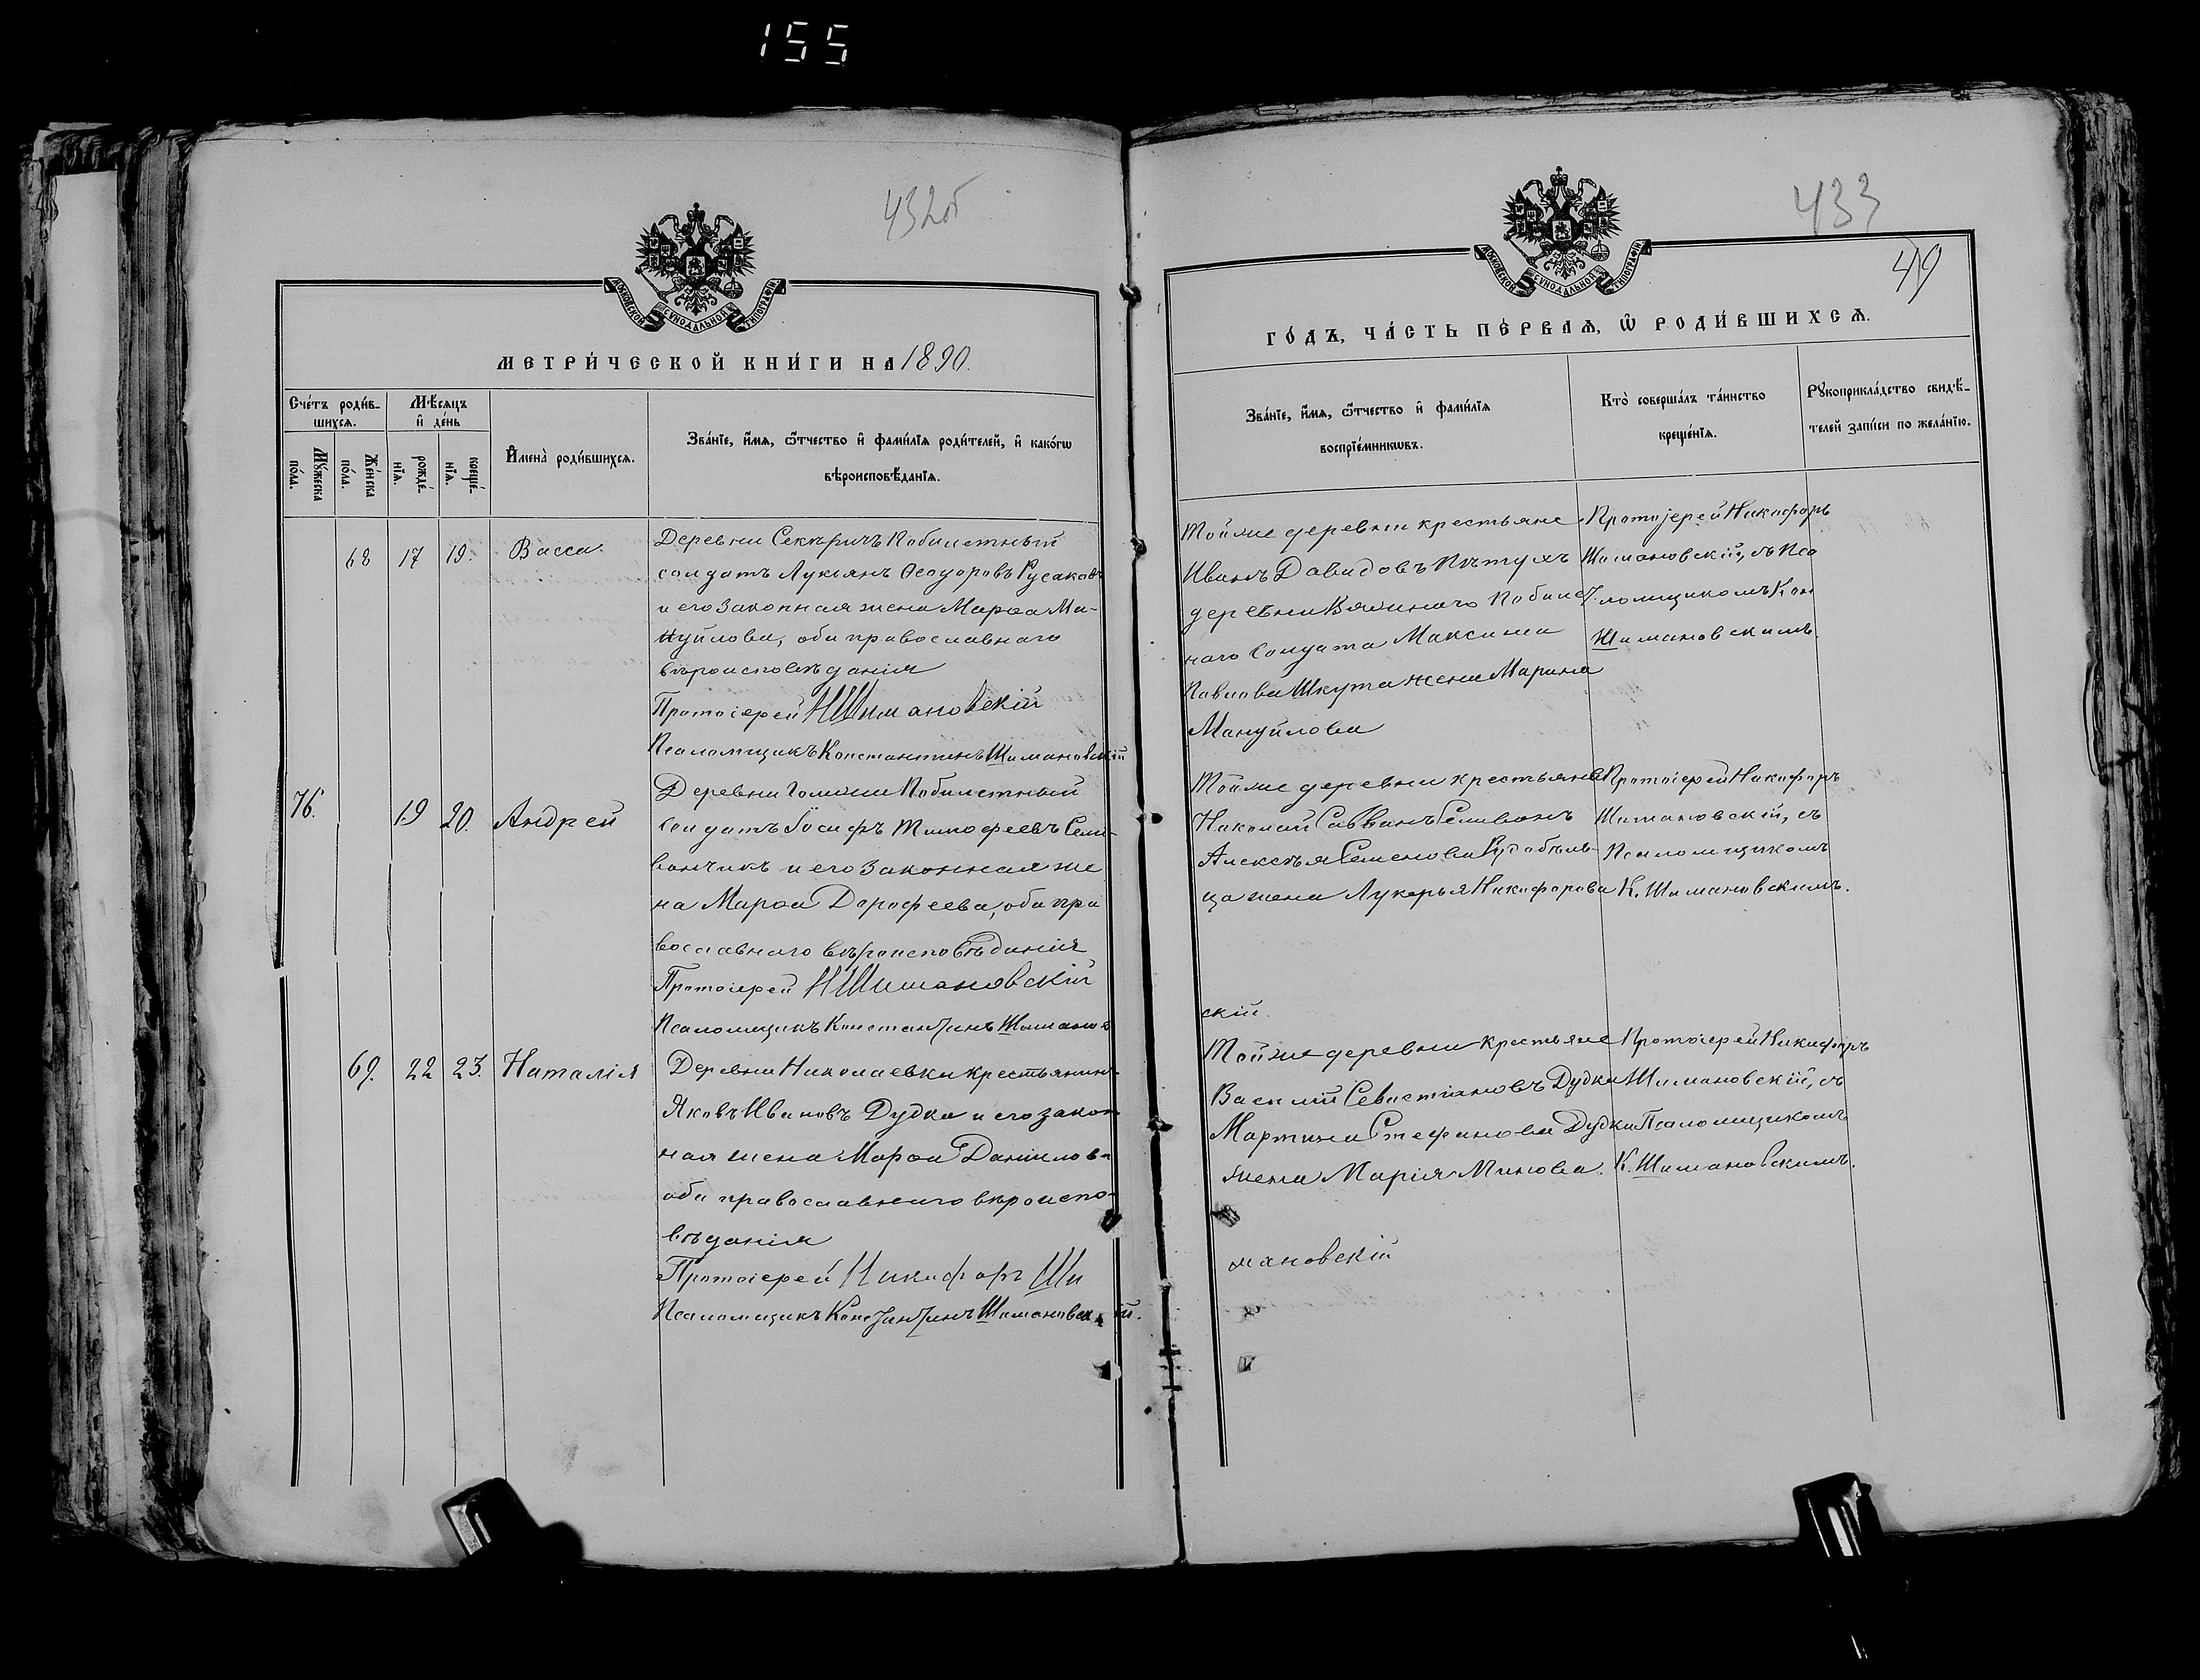 155
432об
МОСКОВСКОЙ СѴНОДАЛЬНОЙ ТИПОГРАФІИ
МЕТРИ́ЧЕСКОЙ КНИ́ГИ НА 1890.
Сче́тъ роди́в-
шихсѧ.
Мѣ́сѧцъ
и҆ де́нь
Мꙋ́жеска
по́ла.
Же́нска
по́ла.
рожде́-
нїѧ.
креще́-
нїѧ.
И҆мена̀ роди́вшихсѧ.
Зва́нїе, и҆́мѧ, ѻ҆́тчество и҆ фами́лїѧ роди́телей, и҆ како́гѡ
вѣроисповѣ́данїѧ.
68 17 19. Васса.
Деревни Секѣричъ Побилетный
солдатъ Лукьянъ Ѳеодоровъ Русаковъ
и его законная жена Марѳа Ма-
нуйлова, оба православнаго
вѣроисповѣданія
Протоіерей НШимановскій
Псаломщикъ Константинъ Шимановскій
76. 19 20. Андрей
Деревни Побилетный
солдатъ Іосифъ Тимофеевъ Сели-
ванчикъ и его законная же
на Марѳа Дорофеева, оба пра
вославнаго вѣроисповѣданія
Протоіерей НШимановскій
Псаломщикъ Константинъ Шиманов
69. 22 23. Наталія
Деревни Николаевки крестьянинъ
Яковъ Ивановъ Дудка и его закон
ная жена Марѳа Даниилова
оба православнаго вѣроиспо-
вѣданія
Протоіерей Никифоръ Ши
Псаломщикъ Константинъ Шимановскій.
433
49
МОСКОВСКОЙ СѴНОДАЛЬНОЙ ТИПОГРАФІИ
ГО́ДЪ, ЧА́СТЬ ПЕ́РВАѦ, Ѡ҆ РОДИ́ВШИХСѦ.
Зва́нїе, и҆́мѧ, ѻ҆́тчество и҆ фами́лїѧ
воспрїе́мникѡвъ.
Кто̀ соверша́лъ та́инство
креще́нїѧ.
Рꙋкоприкла́дство свидѣ́-
телей за́писи по жела́нїю.
Тойже деревни крестьяне
Иванъ Давидовъ Пѣтухъ
деревни Побилет
наго Солдата Максима
Павлова Шкута жена Марина
Мануйлова
Протоіерей Никифоръ
Шимановскій, съ Пса
ломщикомъ Кон
Шимановскимъ.
Тойже деревни крестьяне
Николай Савванъ Селивонъ
Алексѣя Семенова
ца жена Лукерья Никифорова
Протоіерей Никифоръ
Шимановскій, съ
Псаломщикомъ
К. Шимановскимъ.
скій.
Тойже деревни крестьяне
Василій Севастіановъ Дудка
Мартина Стефанова Дудки
жена Марія Минова.
Протоіерей Никифоръ
Шимановскій, съ
Псаломщикомъ
К. Шимановскимъ.
мановскій